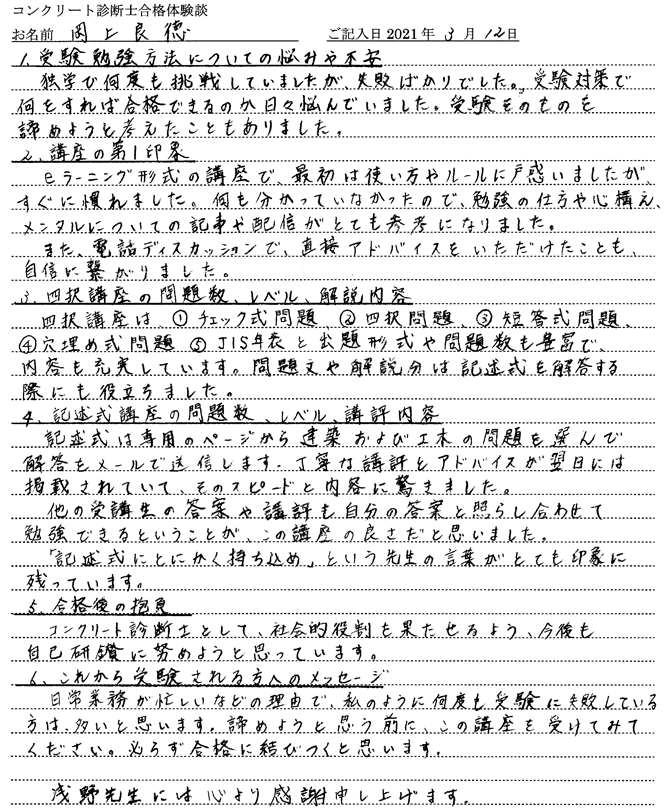 コンクリート診断士合格体験談
お名前 岡上良徳 ご記入日2021年3月12日
1.受験勉強方法についての悩みや不安
独学で何度も挑戦していましたが、失敗ばかりでした。受験対策で
何をすれば合格できるのか日々悩んでいました。受験そのものを
諦めようと考えたこともありました。
2、講座の第1印象
eラーニング形式の講座で、最初は使い方やルールに戸惑いましたが、
すぐに慣れました。何も分かっていなかったので、勉強の仕方や心構え、
メンタルについての記事や配信がとても参考になりました。
また、電話ディスカッションで、直接アドバイスをいただけたことも、
自信に繋がりました。
3.四択講座の問題数、レベル、解説内容
四択講座は①チェック式問題、②四択問題、③短答式問題、
④穴埋め式問題⑤JIS年表と出題形式や問題数も豊富で、
内容も充実しています。問題文や解説分は記述式を解答する
際にも役立ちました。
4、記述式講座の問題数、レベル、講評内容
記述式は専用のページから建築および土木の問題を選んで
解答をメールで送信します。丁寧な講評とアドバイスが翌日には
掲載されていて、そのスピードと内容に驚きました。
他の受講生の答案や講評も自分の答案と照らし合わせて
勉強できるということが、この講座の良さだと思いました。
「記述式にとにかく持ち込め」という先生の言葉がとても印象に
残っています。
5、合格後の抱負
コンクリート診断士として、社会的役割を果たせるよう、今後も
自己研鑽に努めようと思っています。
6、これから受験される方へのメッセージ
日常業務が忙しいなどの理由で、私のように何度も受験に失敗している
方は、多いと思います。諦めようと思う前に、この講座を受けてみて
ください。必らず合格に結びつくと思います。
浅野先生には心より感謝申し上げます。